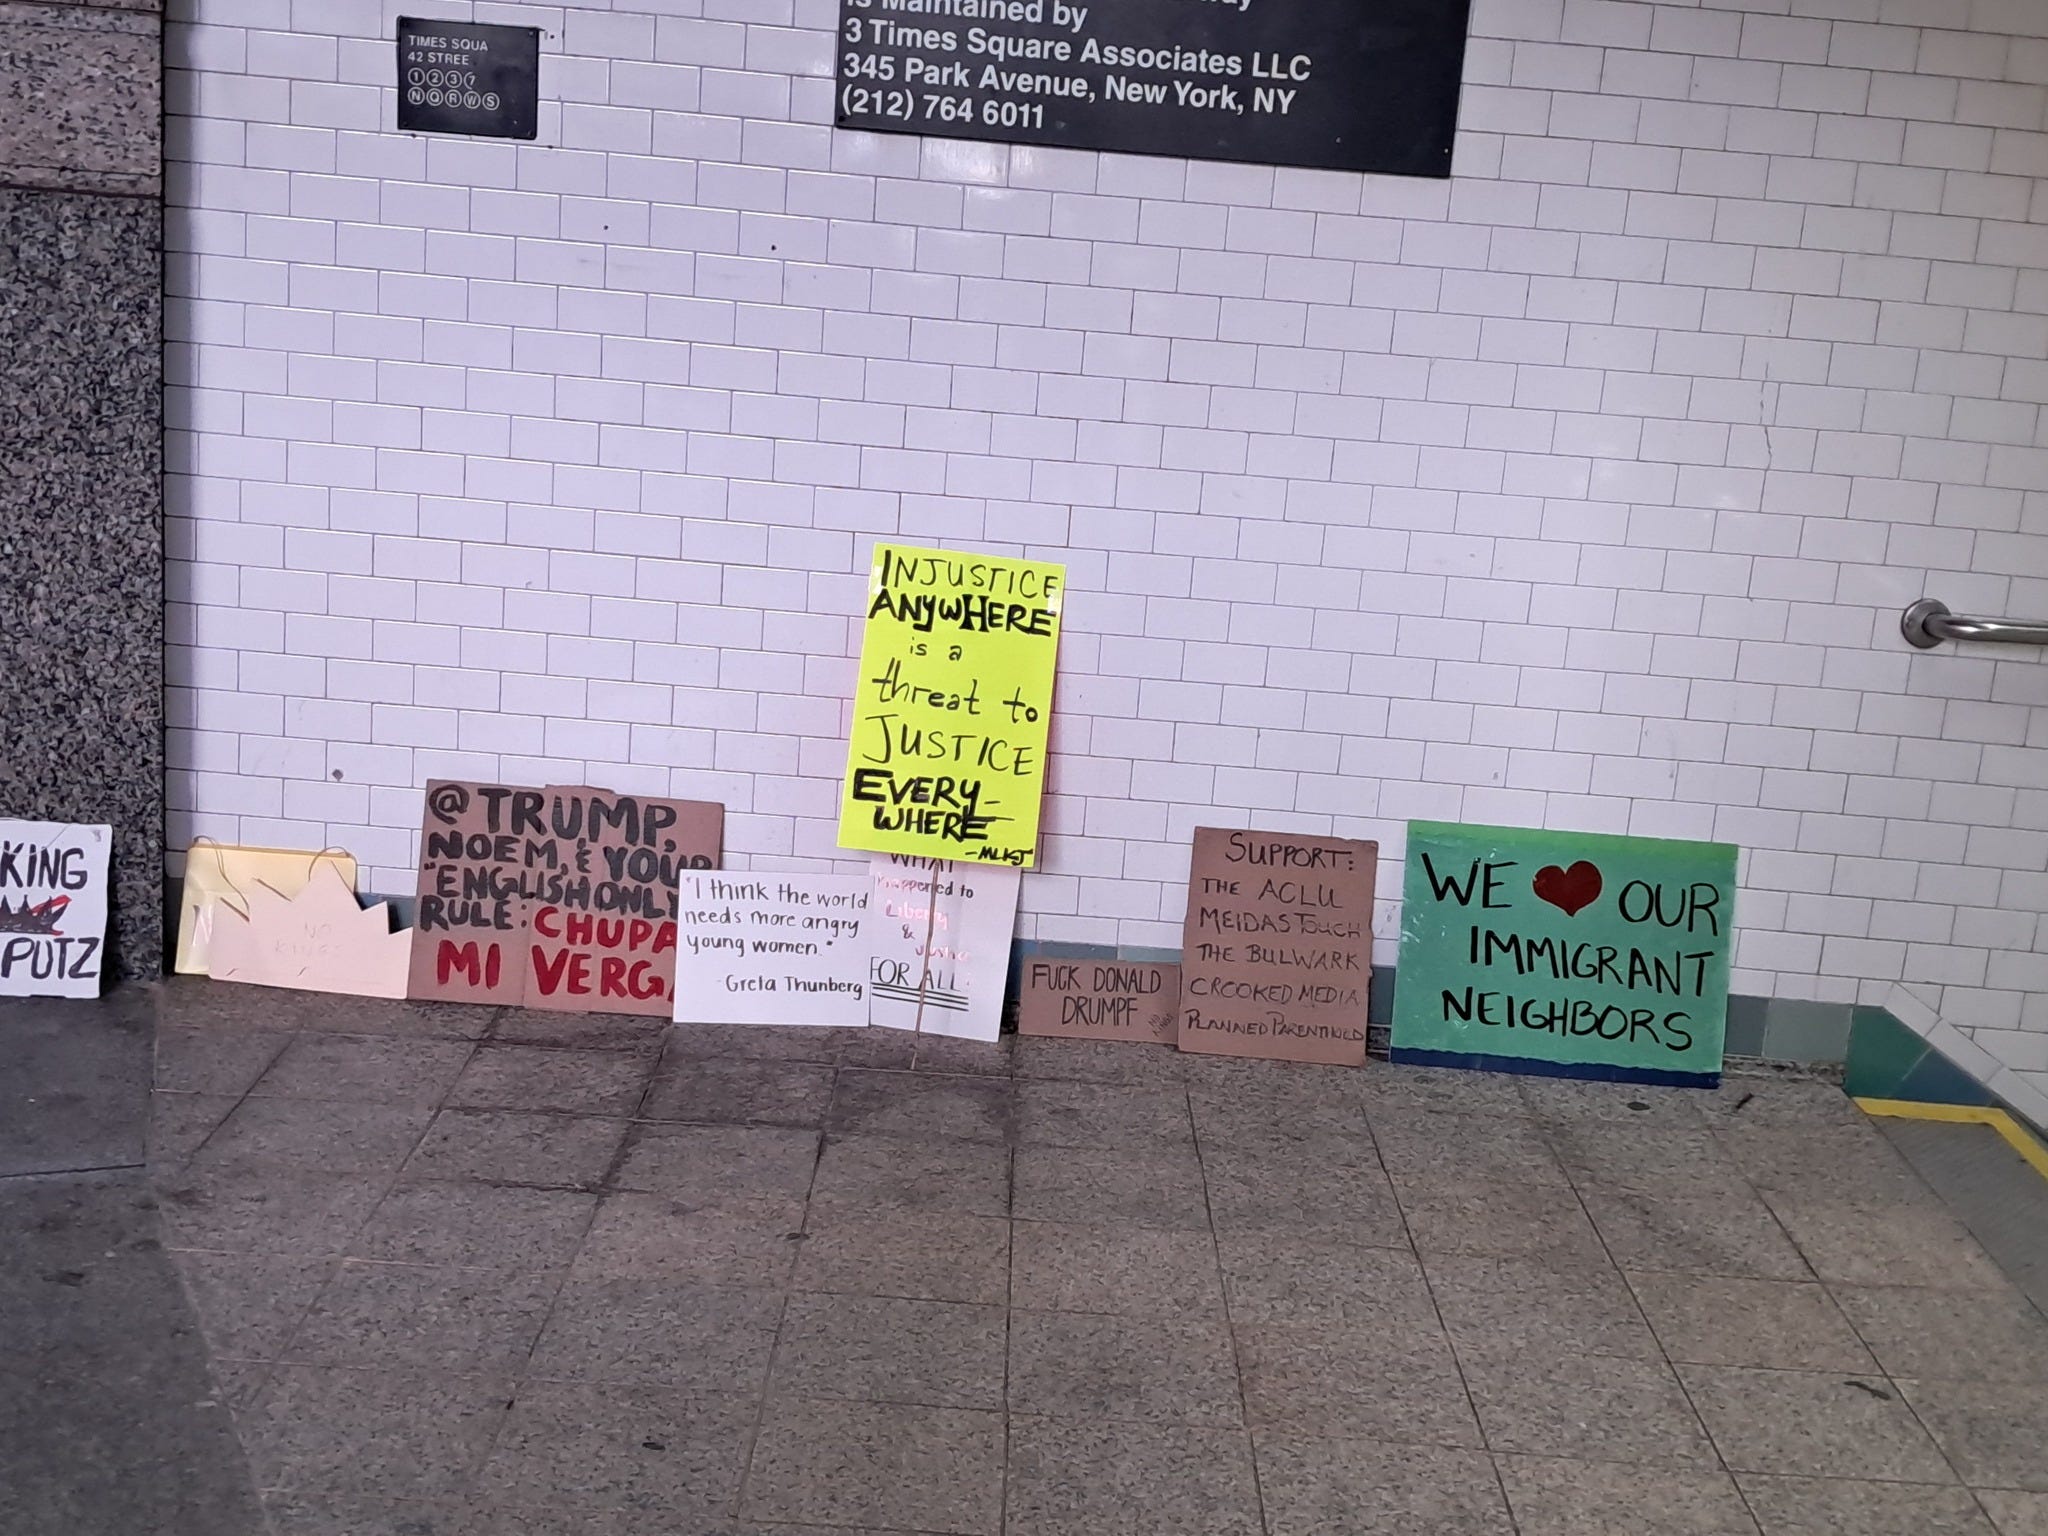 TIMES SQUA
42 STREE
1 2 3 7
N Q R W S
is Maintained by
3 Times Square Associates LLC
345 Park Avenue, New York, NY
(212) 764 6011
KING
PUTZ
N
NO
KINGS
@TRUMP,
NOEM, & YOUR
"ENGLISH ONLY
RULE: CHUPA
MI VERGA
"I think the world
needs more angry
young women."
- Greta Thunberg
INJUSTICE
ANYWHERE
is a
threat to
JUSTICE
EVERY-
WHERE
-MLKJ
WHAT
happened to
Liberty
&
Justice
FOR ALL?
FUCK DONALD
DRUMPF
SUPPORT:
THE ACLU
MEIDASTOUCH
THE BULWARK
CROOKED MEDIA
PLANNED PARENTHOOD
WE ❤ OUR
IMMIGRANT
NEIGHBORS